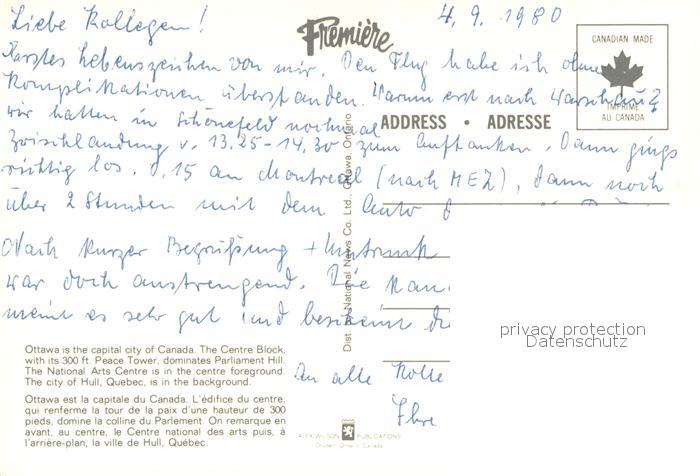 4. 9. 1980
Liebe Kollegen!
Première
CANADIAN MADE
IMPRIMÉ
AU CANADA
Lebenszeichen von mir. Den Flug habe ich ohne
Komplikationen überstanden. Warum erst nach Warschau?
wir hatten in Schönefeld nochmal
ADDRESS • ADRESSE
Zwischlandung v. 13,25-14,30 zum Auftanken. Dann gings
richtig los. 15 an Montreal (nach MEZ), dann noch
über 2 Stunden mit dem Auto
Nach kurzer Begrüßung + Umtrunk
war doch anstrengend. Die
meint es sehr gut und
An alle
Ihre
Dist. by National News Co. Ltd., Ottawa, Ontario
privacy protection
Datenschutz
Ottawa is the capital city of Canada. The Centre Block,
with its 300 ft. Peace Tower, dominates Parliament Hill.
The National Arts Centre is in the centre foreground.
The city of Hull, Quebec, is in the background.
Ottawa est la capitale du Canada. L'édifice du centre,
qui renferme la tour de la paix d'une hauteur de 300
pieds, domine la colline du Parlement. On remarque en
avant, au centre, le Centre national des arts puis, à
l'arrière-plan, la ville de Hull, Québec.
ALEX WILSON PUBLICATIONS
Dryden, Ontario, Canada